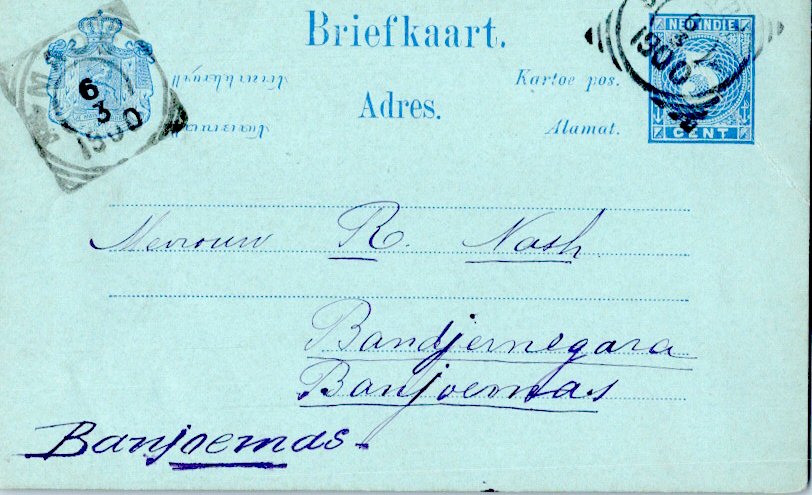 Briefkaart.
NED INDIE
6
3
1900
6
3
1900
Kartoe pos.
Adres.
Alamat.
CENT
Mevrouw R. Nash.
Bandjernegara
Banjoemas
Banjoemas